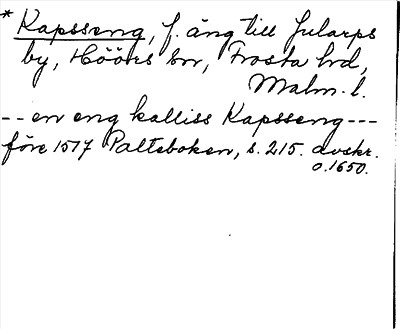 * Kapsseng, f. äng till Jularps
by, Höörs sn, Frosta hd,
Malm. l.
-- en eng kalliss Kapsseng ---
före 1517 Palteboken, s. 215. avskr.
o. 1650.